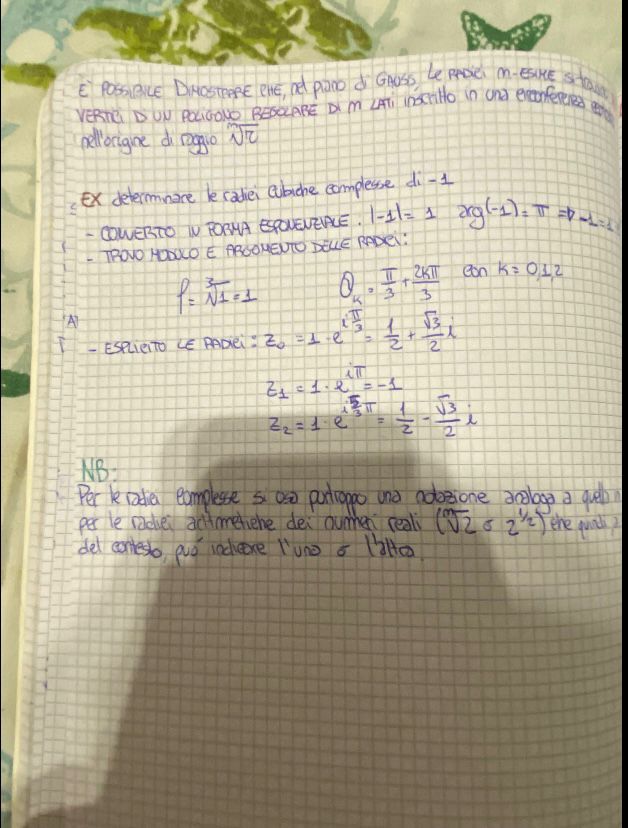 È POSSIBILE DIMOSTRARE CHE, nel piano di GAUSS, le RADICI m-ESIME si
VERTICI DI UN POLIGONO REGOLARE DI m LATI inscritto in una circonferenza
nell'origine di raggio ᵐ√r
EX determinare le radici cubiche complesse di -1
- CONVERTO IN FORMA ESPONENZIALE. |-1| = 1 arg(-1) = π => -1 = 1
- TROVO MODULO E ARGOMENTO DELLE RADICI:
ρ = ³√1 = 1 θₖ = π/3 + 2kπ/3 con k = 0,1,2
- ESPLICITO LE RADICI: z₀ = 1·e^(iπ/3) = 1/2 + √3/2 i
z₁ = 1·e^(iπ) = -1
z₂ = 1·e^(i5/3π) = 1/2 - √3/2 i
NB:
Per le radici complesse si usa purtroppo una notazione analoga a quella
per le radici aritmetiche dei numeri reali (ᵐ√2 o 2^(1/2)) che quindi, a
del contesto, può indicare l'una o l'altra.